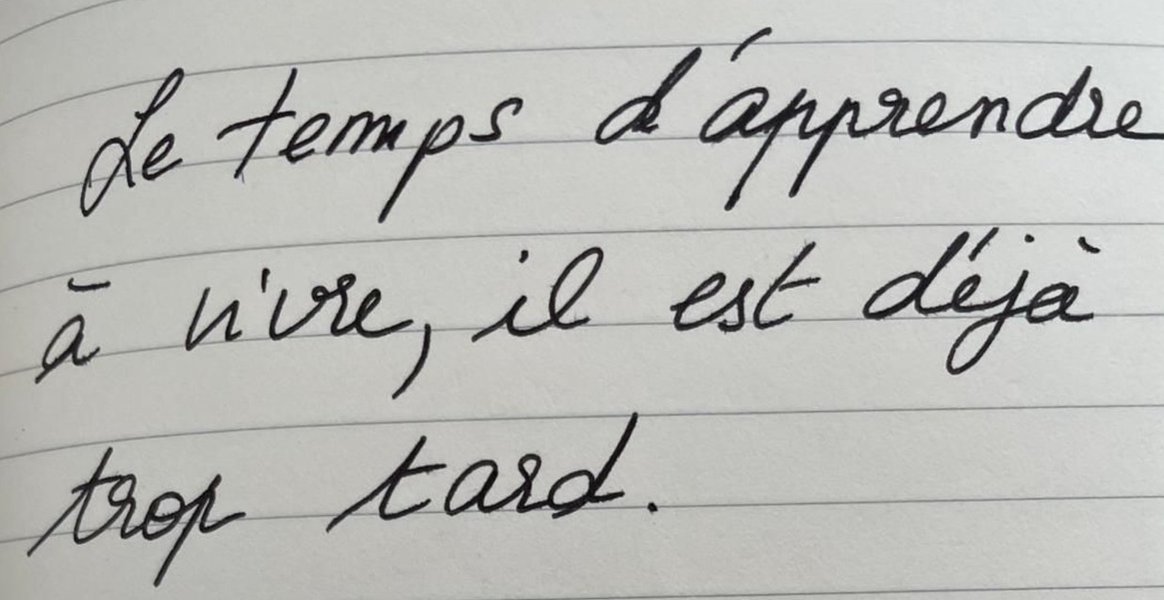 Le temps d'apprendre
à vivre, il est déjà
trop tard.